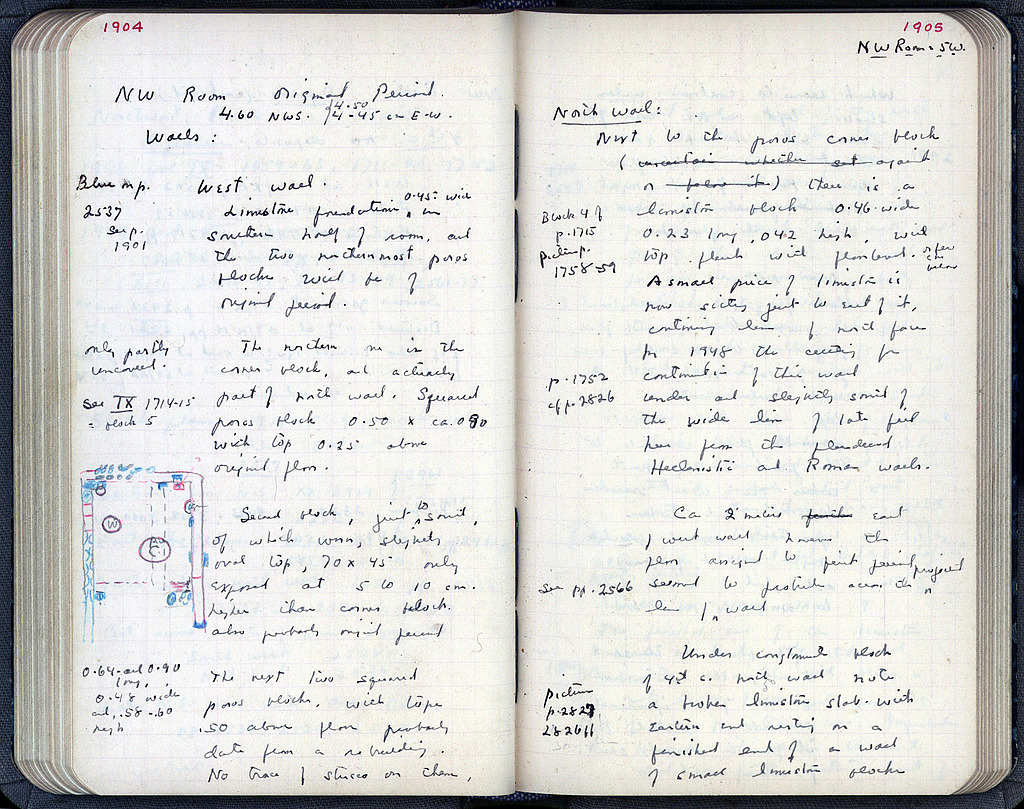 1904
NW Room original Period.
4.60 NWS. 4.50
4-45 cm E-W.
Walls:
Blue mp.
2537
See p.
1901
West wall.
Limestone foundation, 0.45 wide in
southern half of room, and
the two northernmost poros
blocks will be of
original period.
only partly
uncovered.
The northern one is the
corner block, and actually
See IX 1714-15
= block 5
part of north wall. Squared
poros block 0.50 x ca. 0.90
with top 0.25 above
original floor.
W
Second block, just to south,
of which worn, slightly
oval top, 70 x 45 only
exposed at 5 to 10 cm.
higher than corner block.
also probably original period
0.64 and 0.90
long,
0.48 wide
and .58-.60
high
The next two squared
poros blocks, with tops
.50 above floor probably
date from a rebuilding.
No trace of stucco on them,
1905
NW Room = SW.
North wall:
Next to the poros corner block
(uncertain whether set against
or below it) there is a
Block 4 of
p. 1715
limestone block 0.46 wide
0.23 long, 0.42 high, with
picture p.
1758-59
top flush with floor level. or few cm below
A small piece of limestone is
now sitting just W end of it,
continuing line of north face
In 1948 the cutting for
p. 1752
cf p. 2826
continuation of this wall
under and slightly south of
the wide line of late fill
here from the plundered
Hellenistic and Roman walls.
Ca. 2 meters further east
of west wall however the
floor assigned to first period
See pp. 2566
seemed to protrude across the projected
line of wall
Under conglomerate block
of 4th c. north wall note
picture
p. 2827
2826 ff
a broken limestone slab with
eastern end resting on a
finished end of a wall
of small limestone blocks